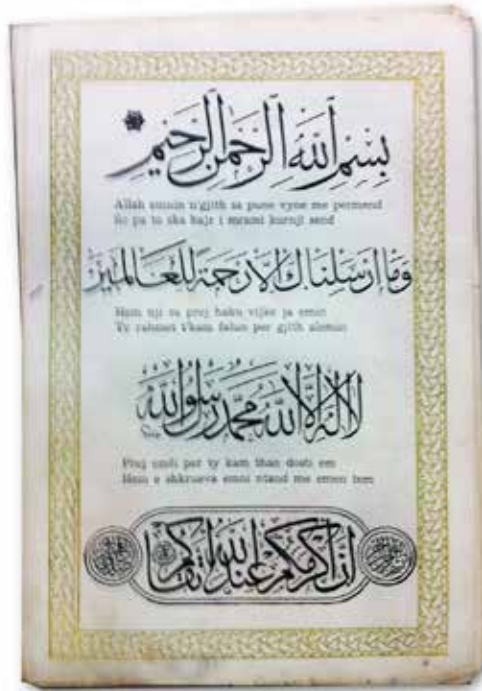 بِسْمِ اللَّهِ الرَّحْمٰنِ الرَّحِيمِ
Allah emnin n'gjith sa pune vyne me permend
Se pa to ska hajr i mrami kurnji send
وَمَا أَرْسَلْنَاكَ إِلَّا رَحْمَةً لِلْعَالَمِينَ
Hem nji sa prej haku vijke ja
Ty rahmet t'kam falun per gjith alemin
لَا إِلٰهَ إِلَّا اللَّهُ مُحَمَّدٌ رَسُولُ اللَّهِ
Prej emli per ty kam than dosti em
Hem e shkrueva emni tand me emen tem
إِنَّ أَكْرَمَكُمْ عِنْدَ اللَّهِ أَتْقَاكُمْ